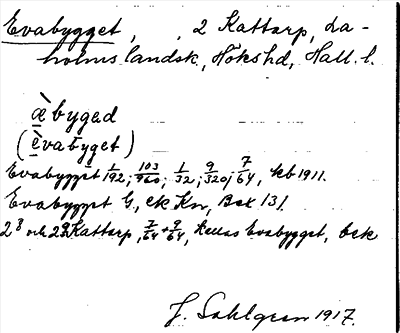 Evabygget, , 2 Kattarp, La-
holms landsk, Höks hd, Hall. l.
æ̀byged
(èvabyget)
Evabygget 1/192; 103/960; 1/32; 9/320; 7/64, kb 1911.
Evabygget G., ek Kn, Box 131.
2 och 2 Kattarp, 7/64 + 9/64, kallas Evabygget, bek
J. Sahlgren 1917.